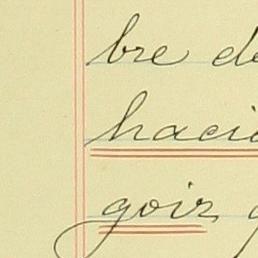 bre de
hacie
goiz g